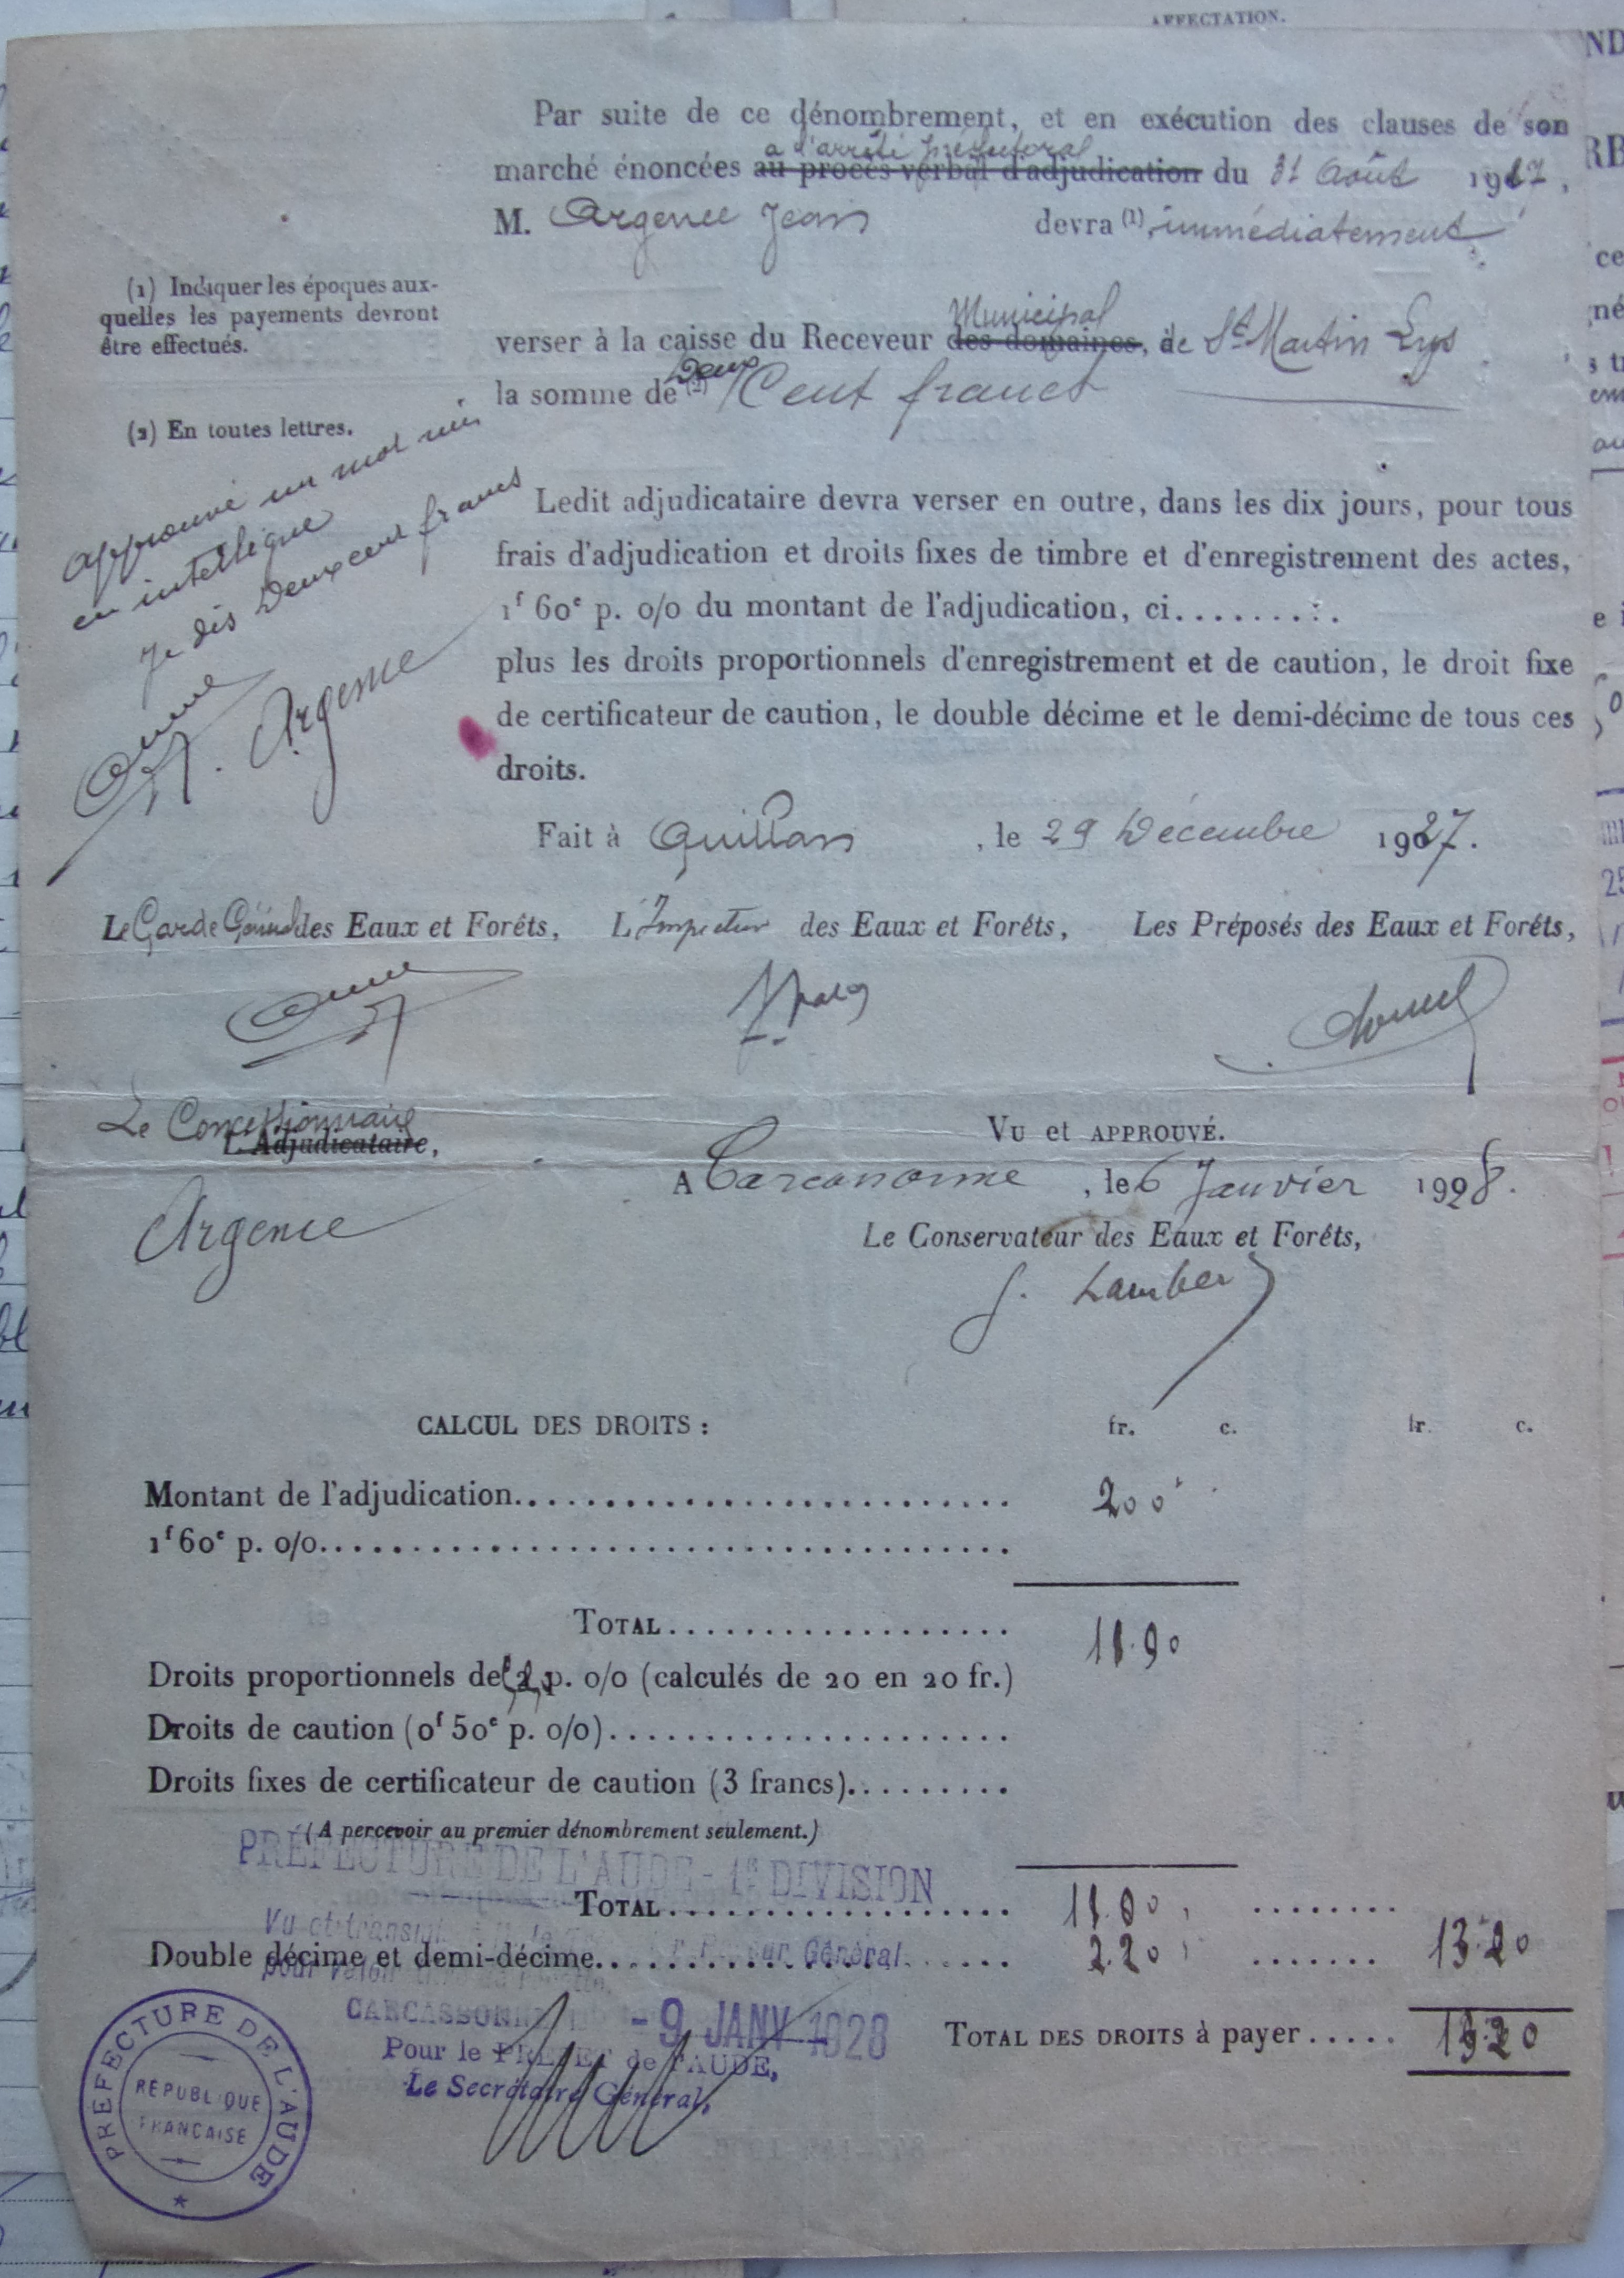 AFFECTATION.
Par suite de ce dénombrement, et en exécution des clauses de son
a l'arrêté préfectoral
marché énoncées au procès-verbal d'adjudication du 31 Août 1927,
M. Argence Jean devra (1) immédiatement
(1) Indiquer les époques aux-
quelles les payements devront
être effectués.
Municipal
verser à la caisse du Receveur des domaines, de St Martin Lys
Deux
la somme de (2) Cent francs
(2) En toutes lettres.
approuvé un mot mis
en interligne
Je dis Deux cent francs
Argence
Ledit adjudicataire devra verser en outre, dans les dix jours, pour tous
frais d'adjudication et droits fixes de timbre et d'enregistrement des actes,
1f 60c p. 0/0 du montant de l'adjudication, ci........
plus les droits proportionnels d'enregistrement et de caution, le droit fixe
de certificateur de caution, le double décime et le demi-décime de tous ces
droits.
Fait à Quillan, le 29 Décembre 1927.
Le Garde Général des Eaux et Forêts, L'Inspecteur des Eaux et Forêts, Les Préposés des Eaux et Forêts,
Le Concessionnaire
L'Adjudicataire,
Argence
VU et APPROUVÉ.
A Carcassonne, le 6 Janvier 1928.
Le Conservateur des Eaux et Forêts,
CALCUL DES DROITS : fr. c. fr. c.
Montant de l'adjudication........ 200
1f 60c p. 0/0........
TOTAL........
Droits proportionnels de p. 0/0 (calculés de 20 en 20 fr.)
Droits de caution (0f 50c p. 0/0)........
Droits fixes de certificateur de caution (3 francs)........
(A percevoir au premier dénombrement seulement.)
PRÉFECTURE DE L'AUDE - 1e DIVISION
TOTAL........
Double décime et demi-décime........ 2.20 13.20
Général
CARCASSONNE - 9 JANV 1928
TOTAL DES DROITS à payer..... 13.20
Pour le PRÉFET de l'AUDE,
Le Secrétaire Général,
PREFECTURE DE L'AUDE
REPUBLIQUE
FRANCAISE